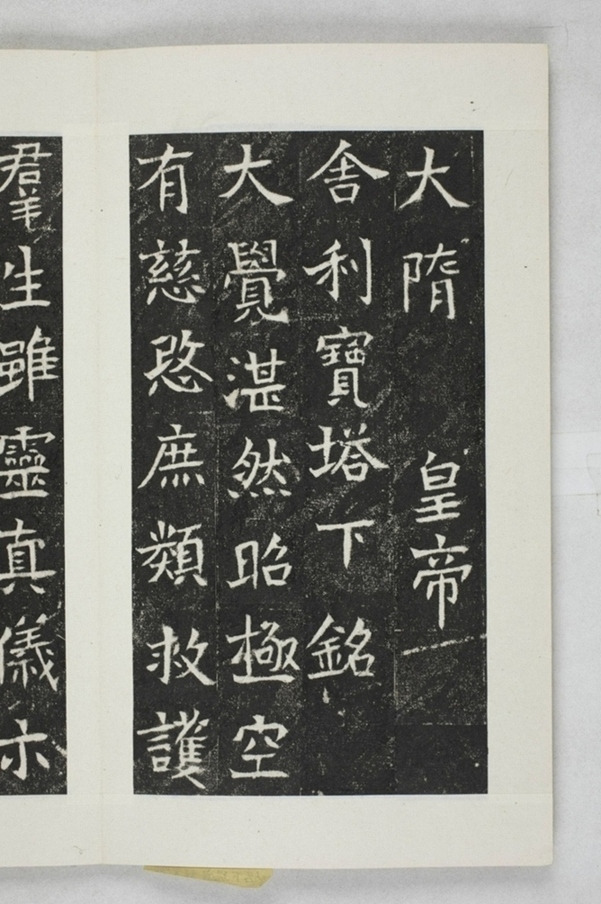 大隋　皇帝
舍利寶塔下銘
大覺湛然昭極空
有慈愍庶類救護
羣生雖靈真儀示